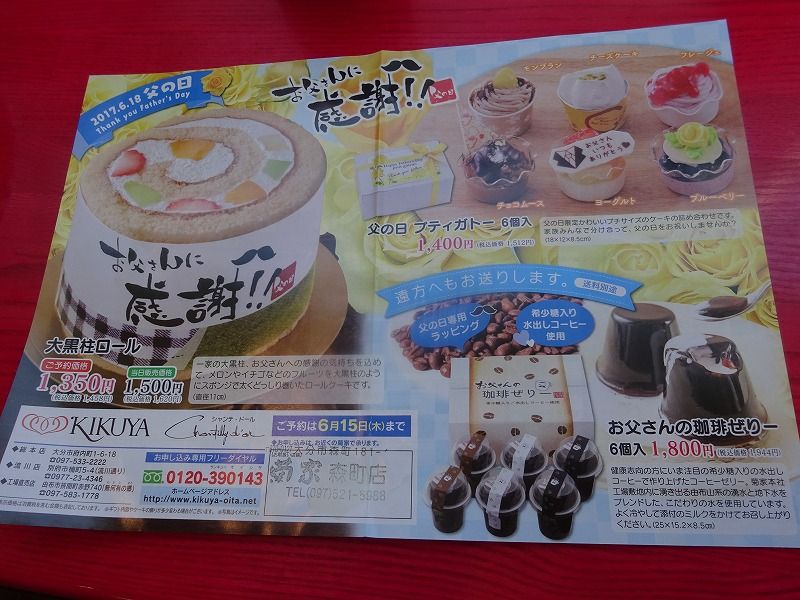 2017.6.18 父の日
Thank you Father's Day
お父さんに
感謝!!
父の日
お父さんに
感謝!!
父の日
大黒柱ロール
ご予約価格
1,350円
(税込価格 1,458円)
当日販売価格
1,500円
(税込価格 1,620円)
一家の大黒柱、お父さんへの感謝の気持ちを込め
て。メロンやイチゴなどのフルーツを大黒柱のよう
にスポンジで太くどっしり巻いたロールケーキです。
(直径11cm)
モンブラン
チーズケーキ
フレージュ
お父さん
いつも
ありがとう
チョコムース
ヨーグルト
ブルーベリー
父の日 プティガトー 6個入
1,400円(税込価格 1,512円)
父の日限定かわいいプチサイズのケーキの詰め合わせです。
家族みんなで分け合って、父の日をお祝いしませんか?
(18×12×8.5cm)
遠方へもお送りします。
送料別途
父の日専用
ラッピング
希少糖入り
水出しコーヒー
使用
お父さんの
珈琲ぜりー
お父さんの珈琲ぜりー
6個入 1,800円(税込価格 1,944円)
健康志向の方にいま注目の希少糖入りの水出し
コーヒーで作り上げたコーヒーゼリー。菊家本社
工場敷地内に湧き出る由布山系の湧水と地下水を
ブレンドした、こだわりの水を使用しています。
よく冷やして添付のミルクをかけてお召し上がり
ください。(25×15.2×8.5cm)
KIKUYA
シャンテ・ドール
ご予約は6月15日(木)まで
●お申し込みは、お近くの菊家で承ります。
●総本店
大分市府内町1-6-18
☎097-533-2222
●流川店
別府市楠町5-4(流川通り)
☎0977-23-4346
●工場直売店
☎097-583-1778
お申し込み専用フリーダイヤル
0120-390143
ホームページアドレス
http://www.kikuya-oita.net
菊家 森町店